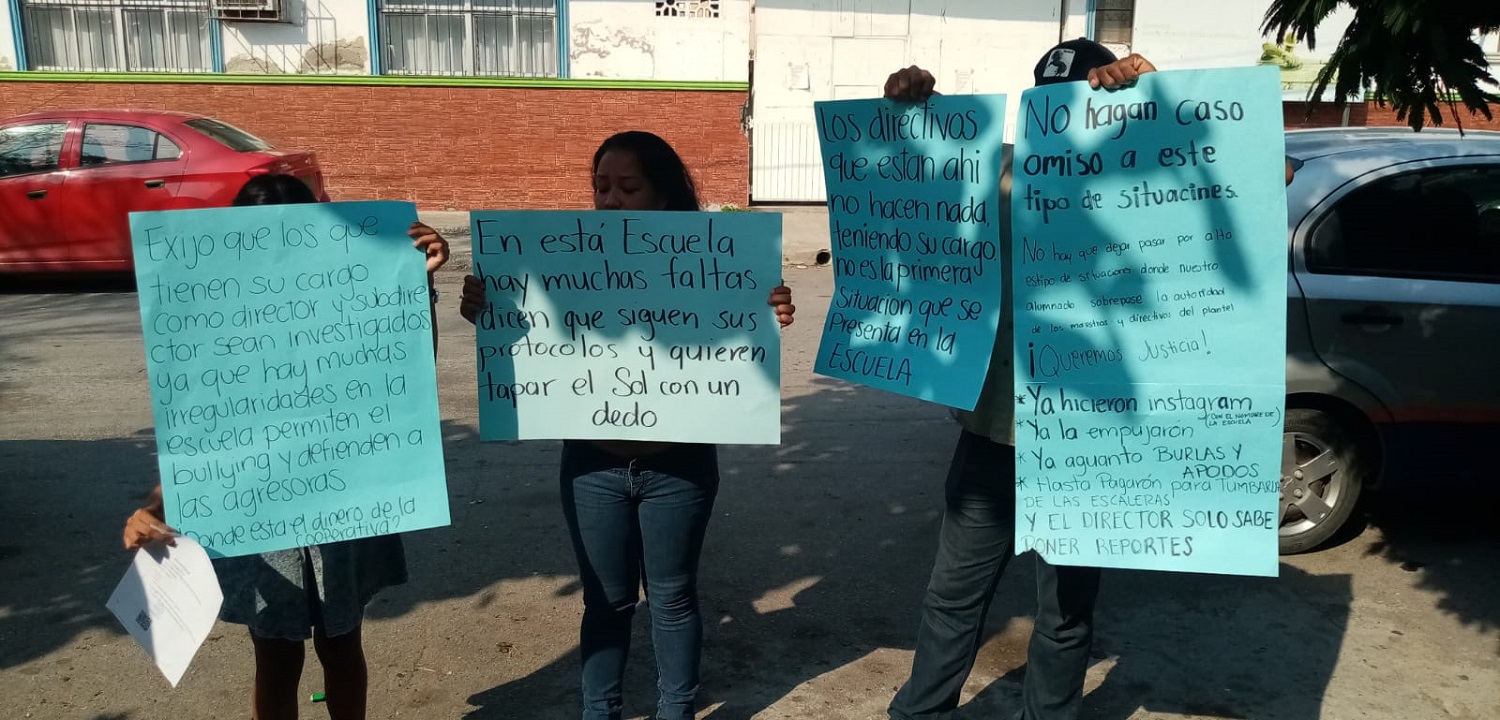 Exijo que los que
tienen su cargo
como director y subdire
ctor sean investigados
ya que hay muchas
irregularidades en la
escuela permiten el
bullying y defienden a
las agresoras
Donde esta el dinero de la
cooperativa?
En está Escuela
hay muchas faltas
dicen que siguen sus
protocolos y quieren
tapar el Sol con un
dedo
Los directivos
que estan ahi
no hacen nada,
teniendo su cargo.
no es la primera
Situacion que se
Presenta en la
ESCUELA
No hagan caso
omiso a este
tipo de situacines.
No hay que dejar pasar por alto
estipo de situaciones donde nuestro
alumnado sobrepase la autoridad
de los maestros y directivos del plantel
¡Queremos Justicia!
*Ya hicieron instagram
(CON EL NOMBRE DE)
LA ESCUELA
*Ya la empujarón
*Ya aguanto BURLAS Y
APODOS
*Hasta Pagarón para TUMBARLA
DE LAS ESCALERAS
Y EL DIRECTOR SOLO SABE
PONER REPORTES